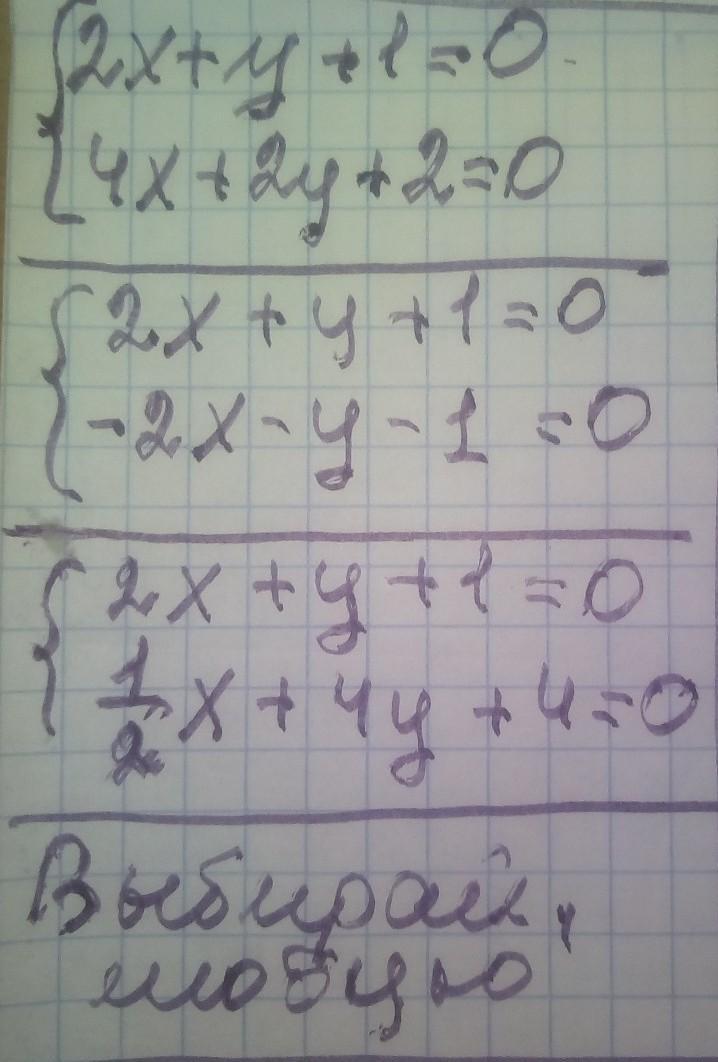 2x + y + 1 = 0
4x + 2y + 2 = 0
2x + y + 1 = 0
-2x - y - 1 = 0
2x + y + 1 = 0
1/2 x + 4y + 4 = 0
Выбирай,
любую